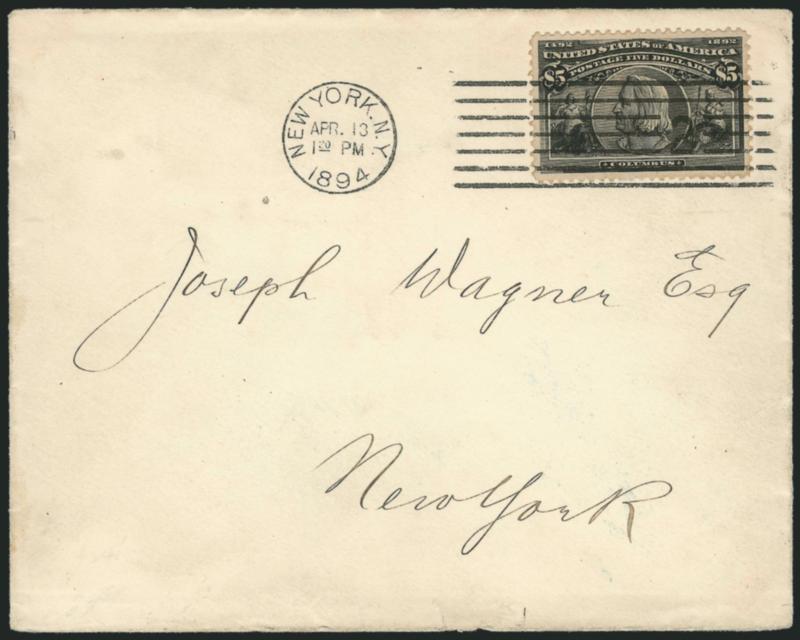 1492 1892
UNITED STATES OF AMERICA
POSTAGE FIVE DOLLARS
$5 $5
COLUMBUS
NEW YORK, N.Y.
APR. 13
1 30 PM
1894
Joseph Wagner Esq
New York